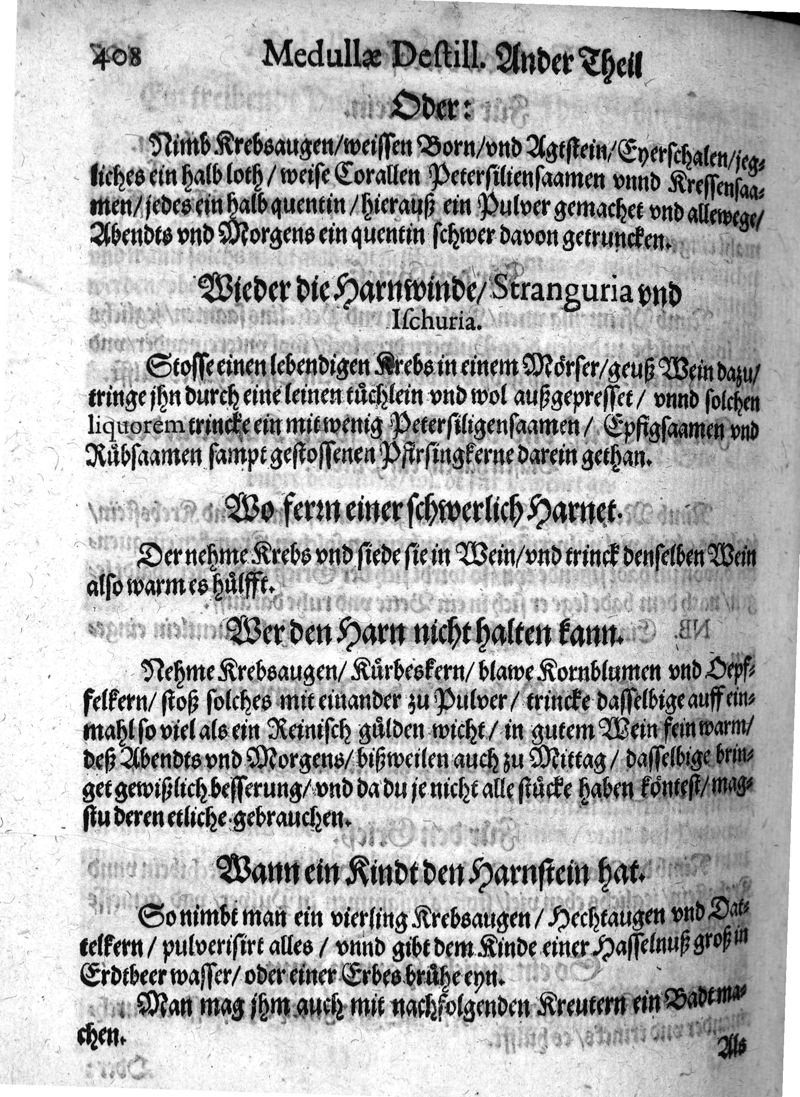 408 Medullæ Destill. Ander Theil
Oder:
Nimb Krebsaugen/weissen Born/vnd Agtstein/Eyerschalen/jeg-
liches ein halb loth/weise Corallen Petersiliensaamen vnnd Kressensaa-
men/jedes ein halb quentin/hierauß ein Pulver gemachet vnd allewege/
Abendts vnd Morgens ein quentin schwer davon getruncken.
Wieder die Harnwinde/Stranguria vnd
Ischuria.
Stosse einen lebendigen Krebs in einem Mörser/geuß Wein dazu/
tringe jhn durch eine leinen tüchlein vnd wol außgepresset/ vnnd solchen
liquorem trincke ein mit wenig Petersiligensaamen/ Epfigsaamen vnd
Rübsaamen sampt gestossenen Pfirsingkerne darein gethan.
Wo ferrn einer schwerlich Harnet.
Der nehme Krebs vnd siede sie in Wein/vnd trinck denselben Wein
also warm es hülfft.
Wer den Harn nicht halten kann.
Nehme Krebsaugen/ Kürbeskern/ blawe Kornblumen vnd Oepf-
felkern/ stoß solches mit einander zu Pulver/ trincke dasselbige auff ein-
mahl so viel als ein Reinisch gülden wicht/ in gutem Wein fein warm/
deß Abendts vnd Morgens/ bißweilen auch zu Mittag/ dasselbige brin-
get gewißlich besserung/vnd da du je nicht alle stücke haben köntest/mag-
stu deren etliche gebrauchen.
Wann ein Kindt den Harnstein hat.
So nimbt man ein vierling Krebsaugen/ Hechtaugen vnd Dat-
telkern/ pulverisirt alles/ vnnd gibt dem Kinde einer Hasselnuß groß in
Erdtbeer wasser/ oder einer Erbes brühe eyn.
Man mag jhm auch mit nachfolgenden Kreutern ein Badt ma-
chen.
Als